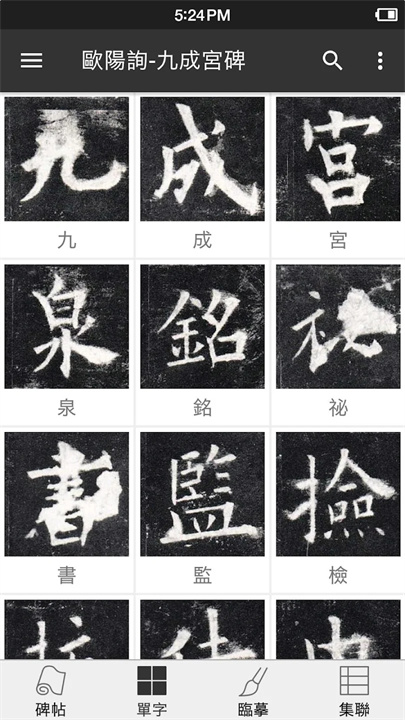 5:24PM
歐陽詢-九成宮碑
九 成 宮
九 成 宮
泉 銘 祕
泉 銘 祕
書 監 撿
書 監 檢
碑帖 單字 臨摹 集聯